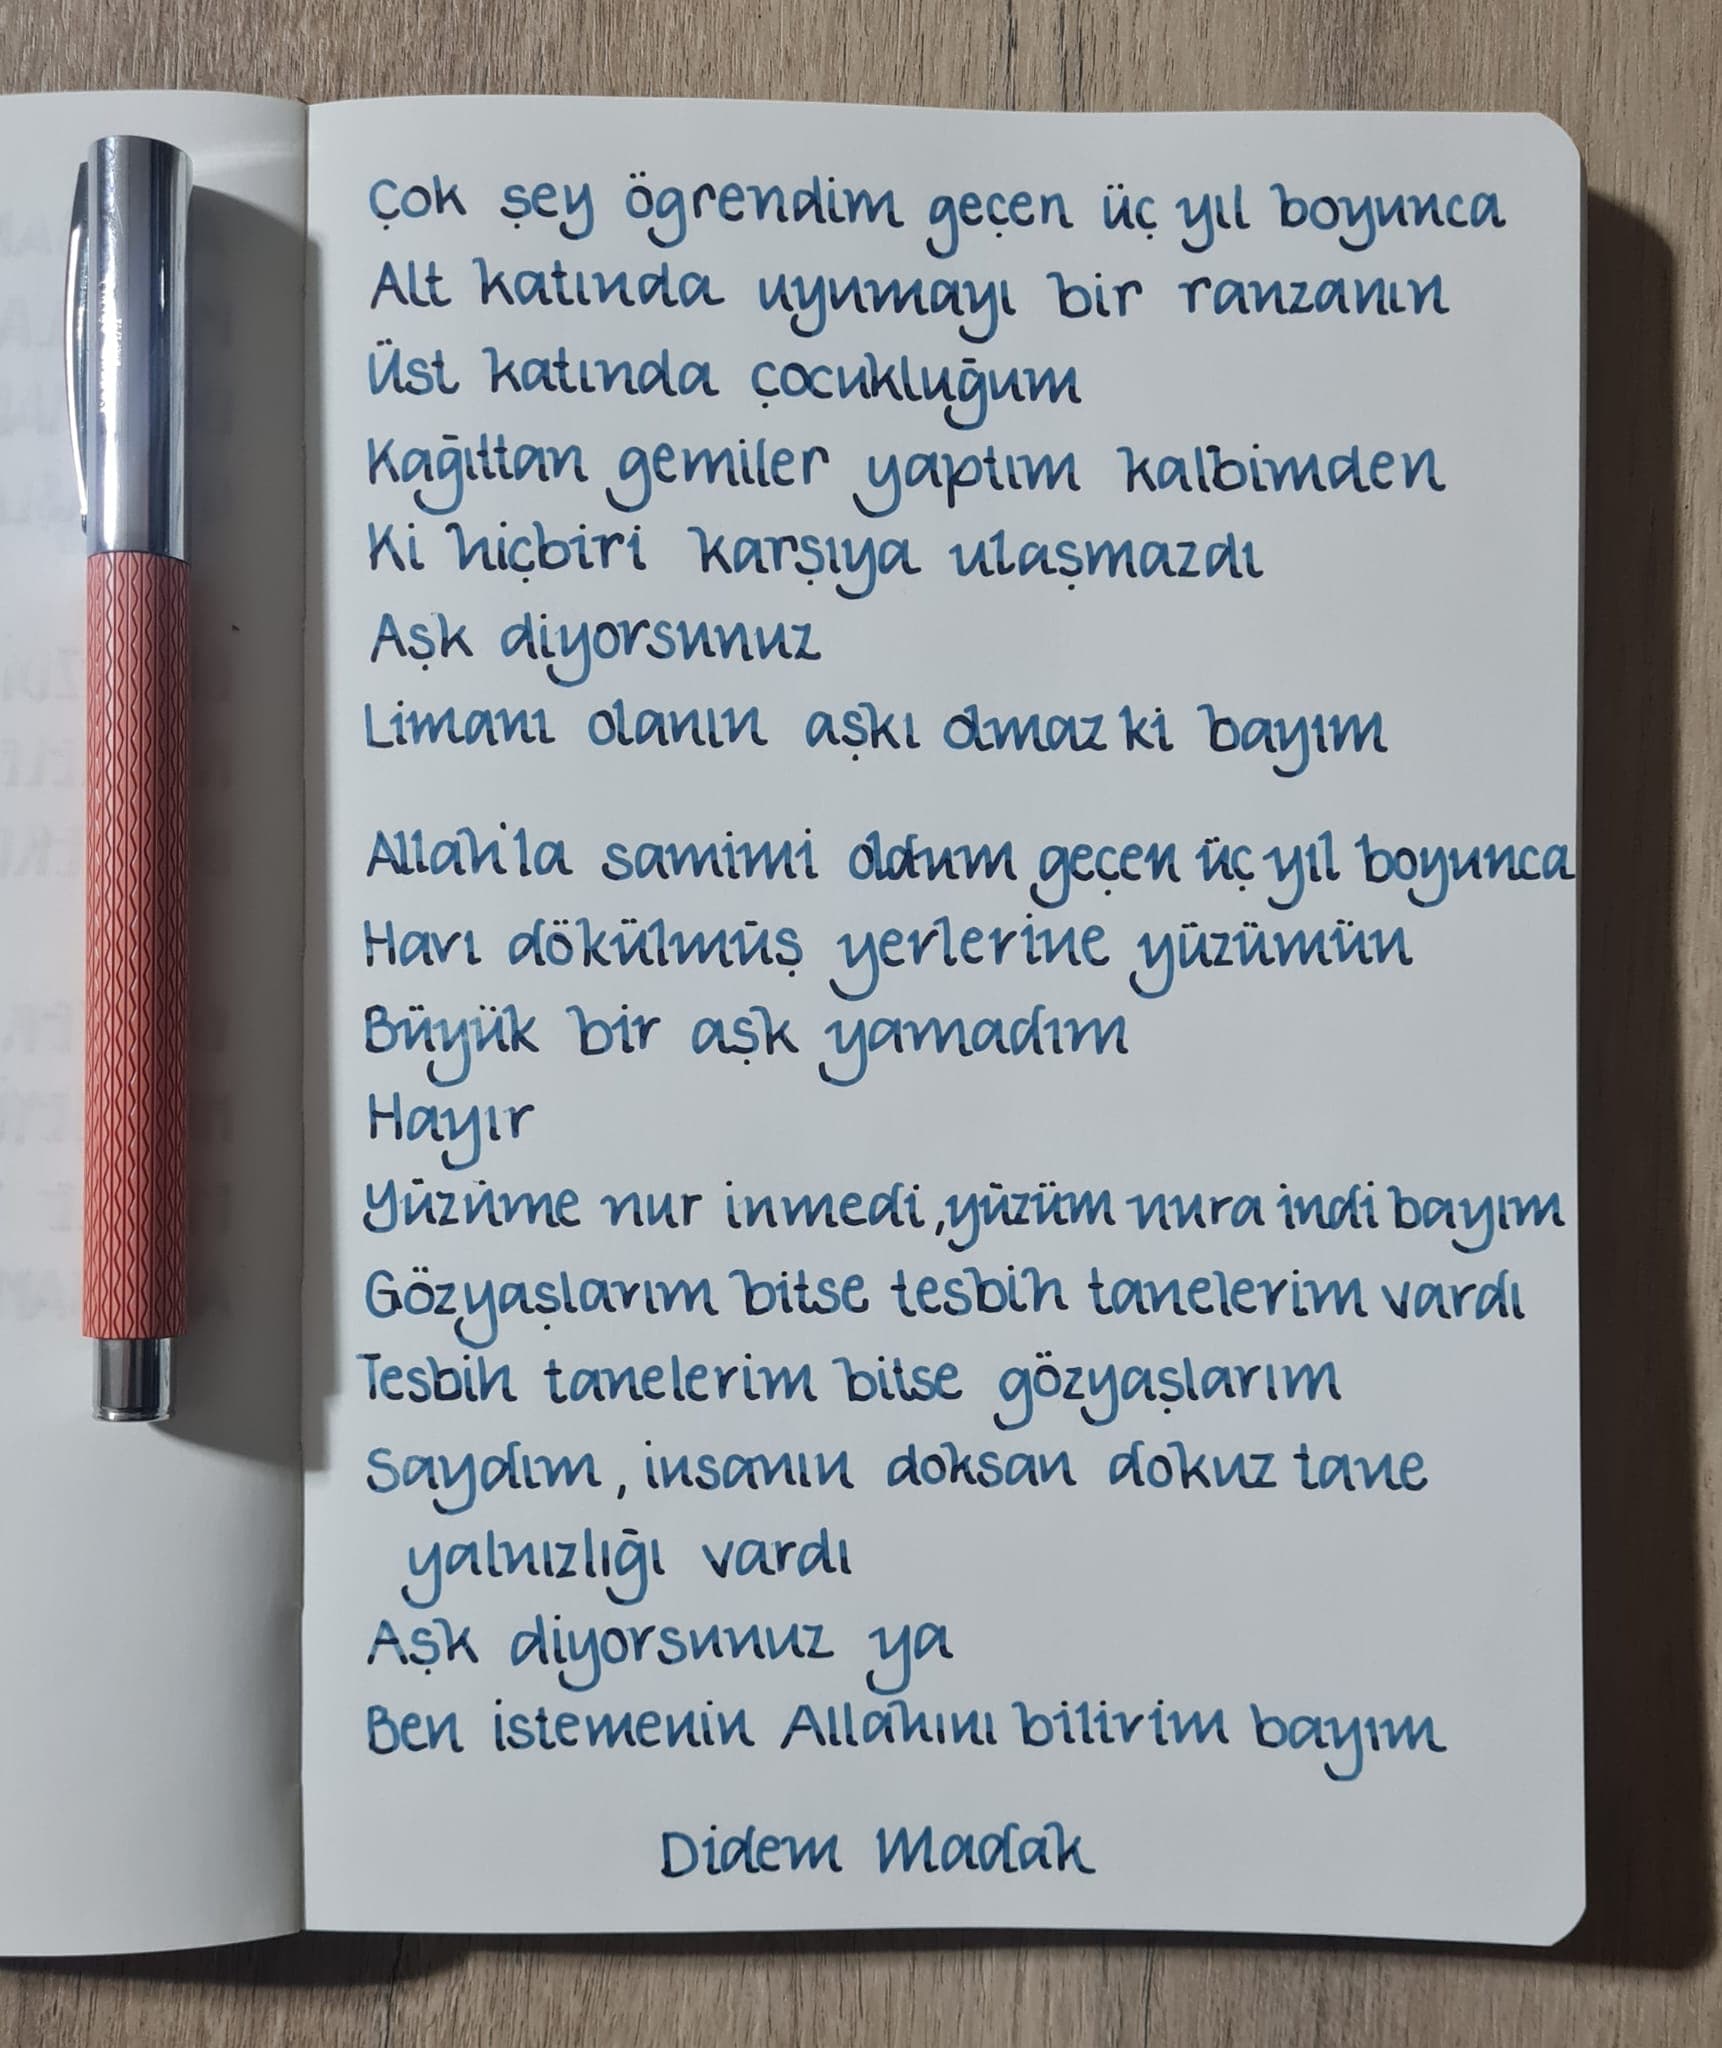 Çok şey ögrendim geçen üç yıl boyunca
Alt katında uyumayı bir ranzanın
Üst katında çocukluğum
Kağıttan gemiler yaptım kalbimden
Ki hiçbiri karşıya ulaşmazdı
Aşk diyorsunuz
Limanı olanın aşkı olmaz ki bayım
Allah'la samimi oldum geçen üç yıl boyunca
Havı dökülmüş yerlerine yüzümün
Büyük bir aşk yamadım
Hayır
Yüzüme nur inmedi, yüzüm nura indi bayım
Gözyaşlarım bitse tesbih tanelerim vardı
Tesbih tanelerim bitse gözyaşlarım
Saydım, insanın doksan dokuz tane
yalnızlığı vardı
Aşk diyorsunuz ya
Ben istemenin Allahını bilirim bayım
Didem Madak